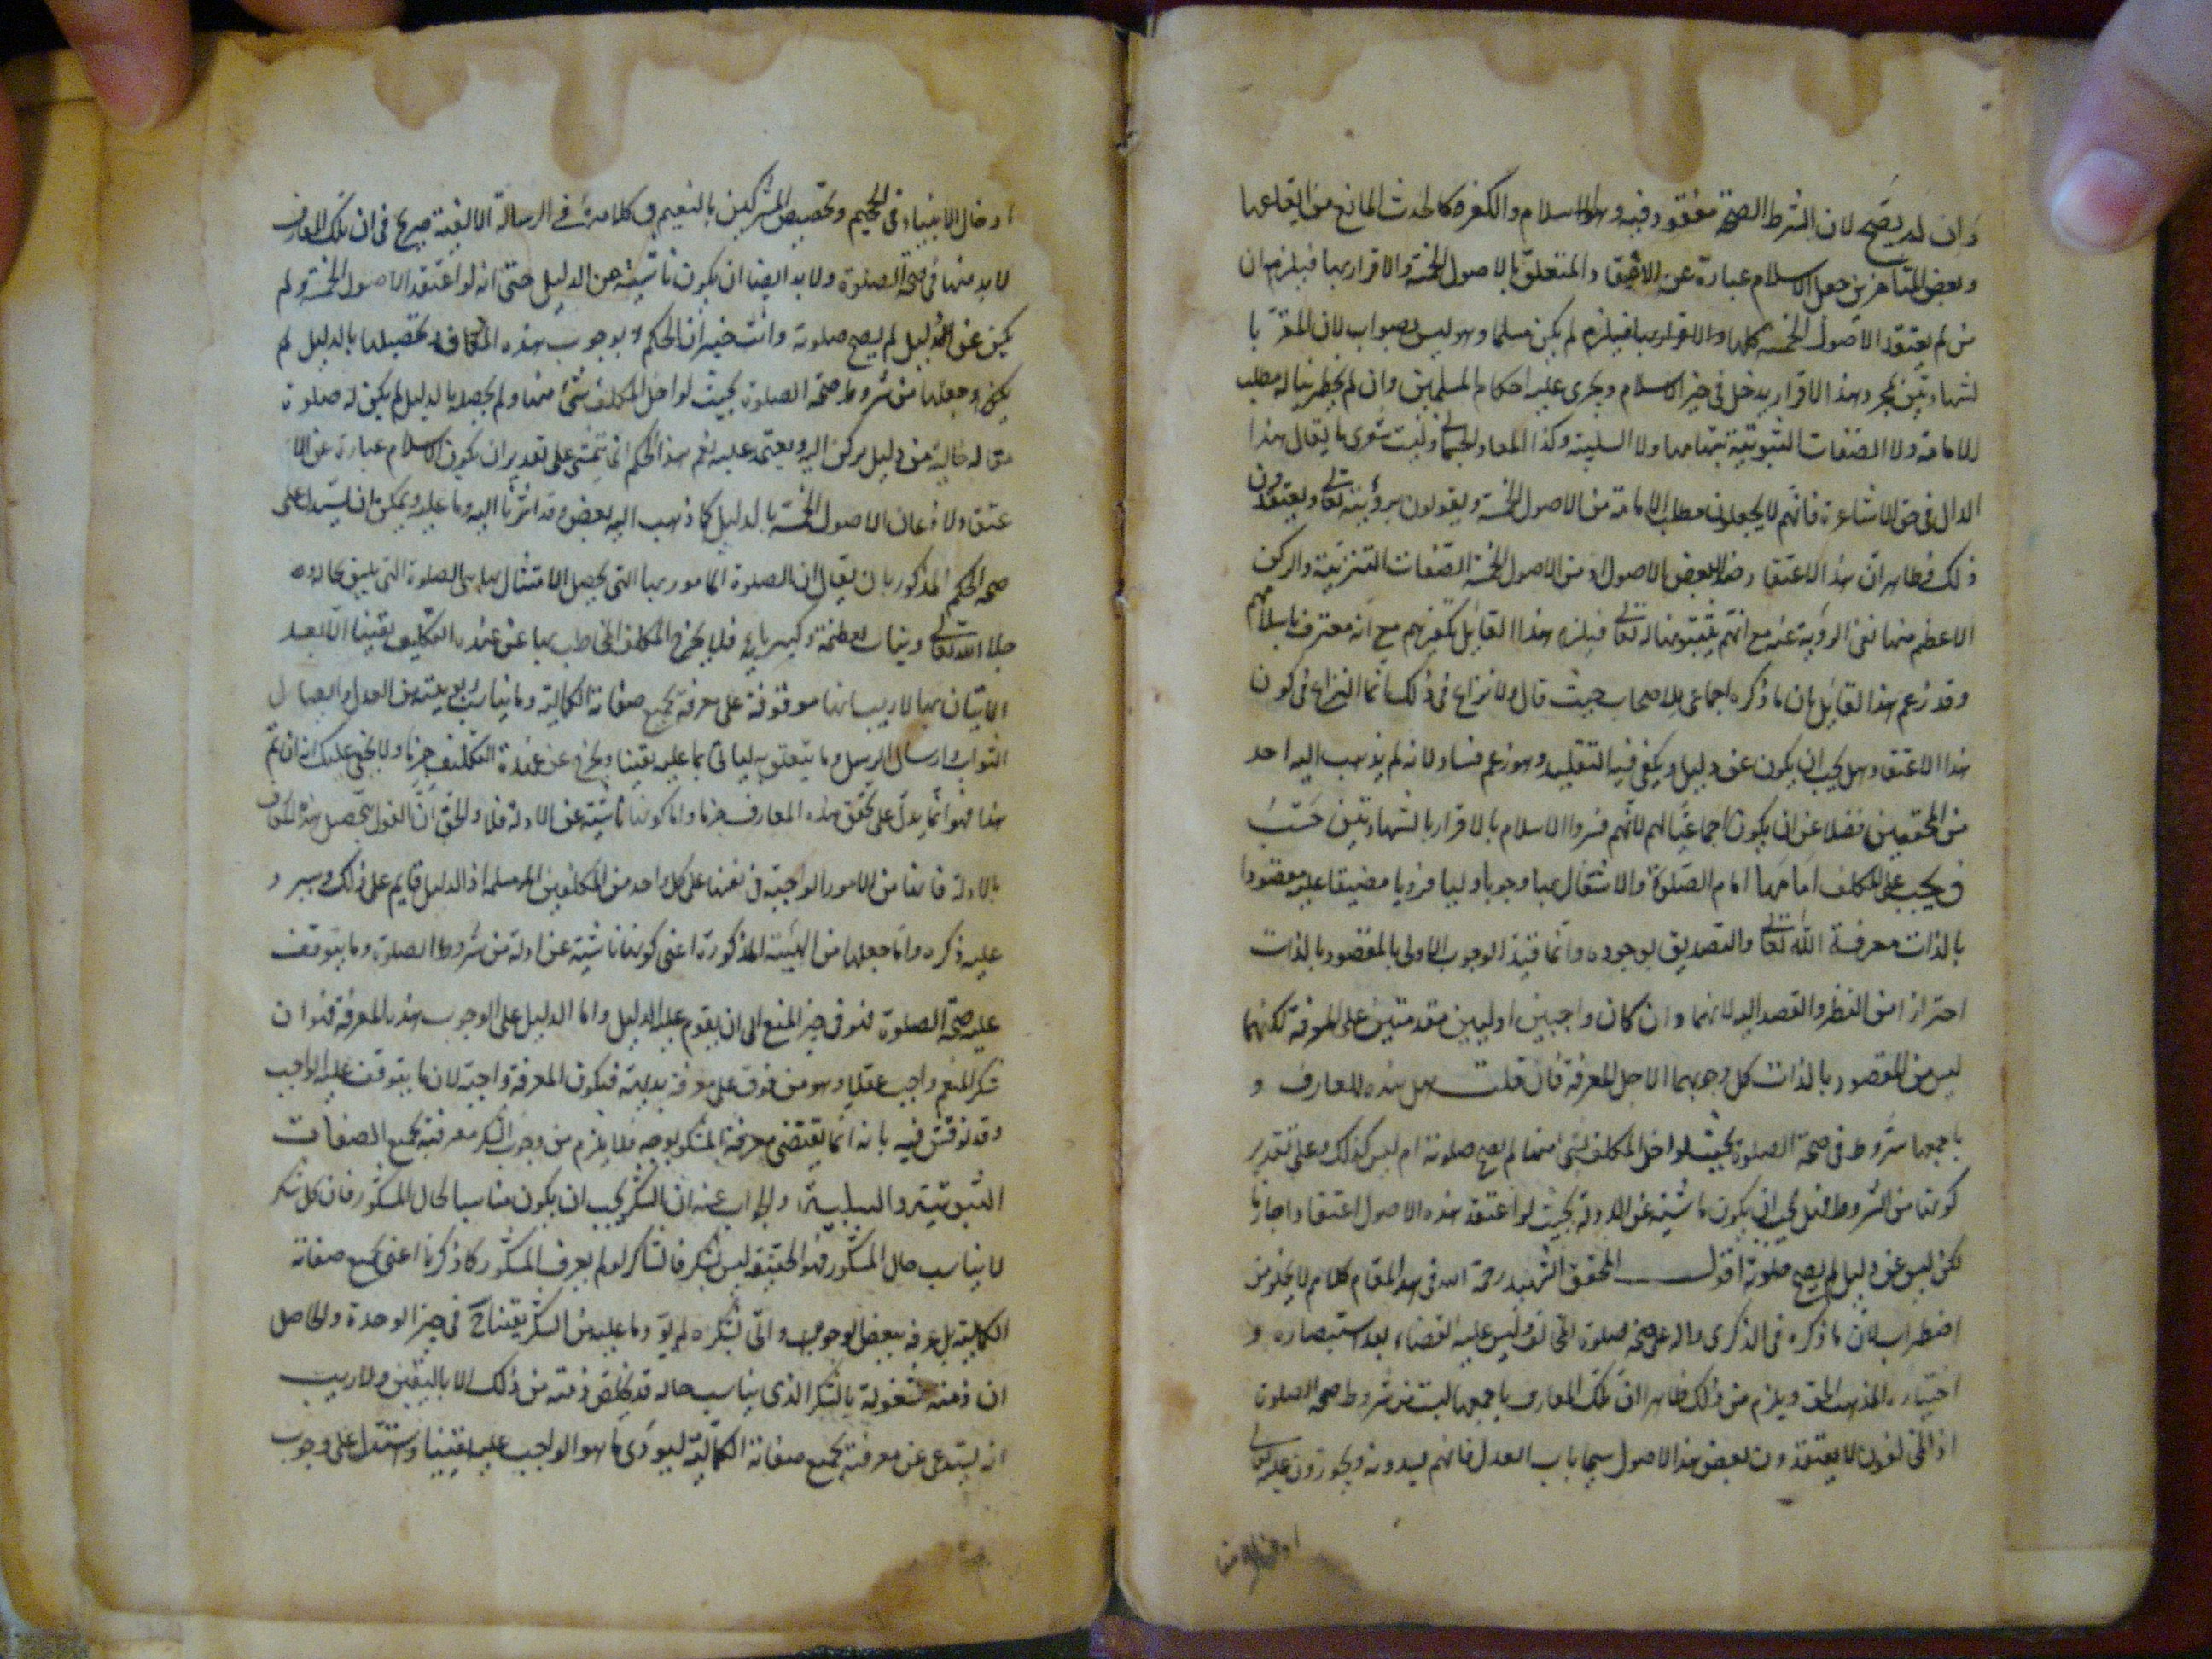 وان لم يصح لان الشرط الصحة مفقود فيه وهو الاسلام والكفر كالحدث المانع من ايقاعها
وبعض المتاخرين جعل الاسلام عبارة عن الاعتقاد المتعلق بالاصول الخمسة والاقرار بها فيلزم ان
من لم يعتقد الاصول الخمسة كلها والاقرار بها فيلزم لم يكن مسلما وهو ليس بصواب لان المقر با
لشهادتين بمجرد هذا الاقرار يدخل في حيز الاسلام ويجرى عليه احكام المسلمين وان لم يخطر بباله مطلب
الامامة ولا الصفات الثبوتية بتمامها ولا السلبية وكذا المعاد الجسماني وليت شعرى ما يقال هذا
الدال في حق الاشاعرة فانهم لا يجعلون مطلب الامامة من الاصول الخمسة ويقولون برؤيته تعالى ويعتقدون
ذلك فظاهر ان هذا الاعتقاد لبعض الاصول اذ من الاصول الخمسة الصفات التنزيهية والركن
الاعظم منها نفى الرؤية عنه مع انهم يثبتونها له تعالى فيلزم هذا القايل تكفيرهم مع انه معترف باسلامهم
وقد زعم هذا القايل بان ما ذكره اجماعى للاصحاب حيث قال ولا نزاع في ذلك انما النزاع في كون
هذا الاعتقاد هل يجب ان يكون عن دليل او يكفى فيه التقليد وهو زعم فساد لانه لم يذهب اليه احد
من المحققين فضلا عن ان يكون اجماعيا لهم لانهم فسروا الاسلام بالاقرار بالشهادتين حسب
ف يجب على المكلف امامها امام الصلوة والاشتغال بها وجوبا اوليا فرديا مضيقا عليه مقصودا
بالذات معرفة الله تعالى والتصديق بوجوده وانما قيد الوجوب الاولى بالمقصود بالذات
احترازا من النظر والقصد اليه لانهما وان كان واجبين اوليين مقدمتين على المعرفة لكنهما
ليس من المقصود بالذات كل وجوبهما الاجل المعرفة فان قلت هل هذه المعارف و
باجمعها شروط في صحة الصلوة بحيث لو اخل المكلف بشئ منها لم يصح صلوته ام ليس كذلك وعلى تقدير
كونها من الشروط فهل يجب ان يكون ناشية عن الادلة بحيث لو اعتقد هذه الاصول اعتقادا جازما
لكن ليس عن دليل لم يصح صلوته اقول المحقق الشهيد رحمة الله في هذا المقام كلام لا يخلو من
اضطراب لان ما ذكره في الذكرى دال على صحة صلوة المخالف وليس عليه القضاء بعد استبصاره و
اختياره المذهب الحق ويلزم من ذلك ظاهرا ان تلك المعارف باجمعها ليست من شروط صحة الصلوة
اذ المخالفون لا يعتقدون بعض هذا الاصول سيما باب العدل فانهم يجوزون عليه تعالى
ادخال الانبياء في الجحيم وتخصيص المشركين بالنعيم وكلامه في الرسالة الالفية صريح في ان تلك المعارف
لا بد منها في صحة الصلوة ولا بد ايضا ان يكون ناشية عن الدليل حتى انه لو اعتقد الاصول الخمسة ولم
يكن عن الدليل لم يصح صلوته وانت خبير ان الحكم بوجوب هذه المعارف وتحصيلها بالدليل لم
يكن وجعلها من شروط صحة الصلوة بحيث لو اخل المكلف بشئ منها ولم يحصله بالدليل لم يكن له صلوة
مقاله خالية من دليل يركن اليه ويعتمد عليه نعم هذا الحكم انما يتمشى على تقدير ان يكون الاسلام عبارة عن الا
عتقاد ولاذعان الاصول الخمسة بالدليل كما ذهب اليه بعض وقد اشرنا اليه وما عليه ويمكن ان يستدل على
صحة الحكم المذكور بان يقال ان الصلوة المامور بها التى يحصل الامتثال بها هى الصلوة التى يليق بحاله
جلال الله تعالى ويناسب لعظمته وكبريائه فلا يخرج المكلف المخاطب بها عن عهدة التكليف يقينا الا بعد
الاتيان بها لا ريب انها موقوفة على معرفة جميع صفاته الكمالية وما يناسب ربوبيته من العدل وايصال
الثواب وارسال الرسل وما يتعلق به لياتى بما عليه يقينا ويخرج عن عهدة التكليف جزما ولا يخفى عليك انه ان تم
هذا فهو انما يدل على تحقق هذه المعارف جزما واما كونها ناشية عن الادلة فلا والحق ان القول بتحصيل هذه المعارف
بالادلة فانها من الامور الواجبة في نفسها على كل واحد من المكلفين امر مسلم اذ الدليل قايم على ذلك وسيرد
عليه ذكره واما جعلها من الهيئة المذكورة اعنى كونها ناشية عن ادلة من شروط الصلوة وما يتوقف
عليه صحة الصلوة فهو في حيز المنع الى ان يقوم عليه الدليل واما الدليل على الوجوب هذه المعرفة فهو ان
شكر المنعم واجب عقلا وهو موقوف على معرفة بديهة فيكون المعرفة واجبة لان ما يتوقف عليه الواجب
وقد نوقش فيه بانه انما يقتضى معرفة المشكور بوجه فلا يلزم من وجوب الشكر معرفته بجميع الصفات
الثبوتية والسلبية والجواب عنه ان الشكر يجب ان يكون مناسبا لحال المشكور فان كل شكر
لا يناسب حال المشكور فهو في الحقيقة ليس بشكر فالشاكر لو لم يعرف المشكور كما ذكرنا اعنى بجميع صفاته
الكمالية بل عرفه ببعض الوجوه واتى بشكره لم يؤد ما عليه من الشكر يقينا ح في حيز الوحدة والحاصل
ان ذمته مشغولة بالشكر الذى يناسب حاله قد يخلص ذمته من ذلك الا باليقين ولا ريب
انه يستدعى عن معرفته بجميع صفاته الكمالية ليودى ما هو الواجب عليه يقينا واستدل على وجوب